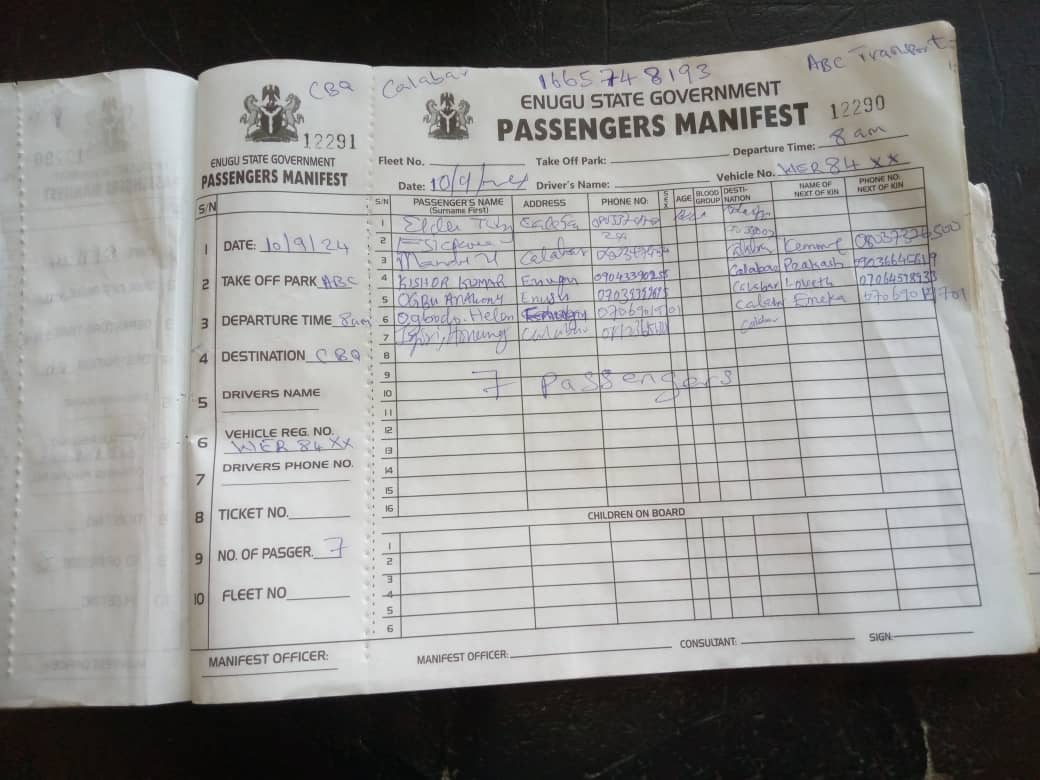 CBQ
12291
ENUGU STATE GOVERNMENT
PASSENGERS MANIFEST
S/N
1 DATE: 10/9/24
2 TAKE OFF PARK ABC
3 DEPARTURE TIME 8am
4 DESTINATION CBQ
5 DRIVERS NAME
6 VEHICLE REG. NO.
WER 84 XX
7 DRIVERS PHONE NO.
8 TICKET NO.
9 NO. OF PASGER. 7
10 FLEET NO
MANIFEST OFFICER:
Calabar 1665748193 ABC Transport
ENUGU STATE GOVERNMENT
PASSENGERS MANIFEST 12290
Fleet No. Take Off Park: Departure Time: 8am
Date: 10/9/ Driver's Name: Vehicle No. WER 84 XX
S/N PASSENGER'S NAME (Surname First) ADDRESS PHONE NO: SEX AGE BLOOD GROUP DESTINATION NAME OF NEXT OF KIN PHONE NO: NEXT OF KIN
1 Elder
2
3 Calabar
4 KISHOR KUMAR Enugu Calabar Prakash
5 Ogbu Anthony Enugu Calabar
6 Ogbodo Helen Calabar Emeka
7 Calabar
8
9
7 Passengers
10
11
12
13
14
15
16
CHILDREN ON BOARD
1
2
3
4
5
6
MANIFEST OFFICER: CONSULTANT: SIGN: